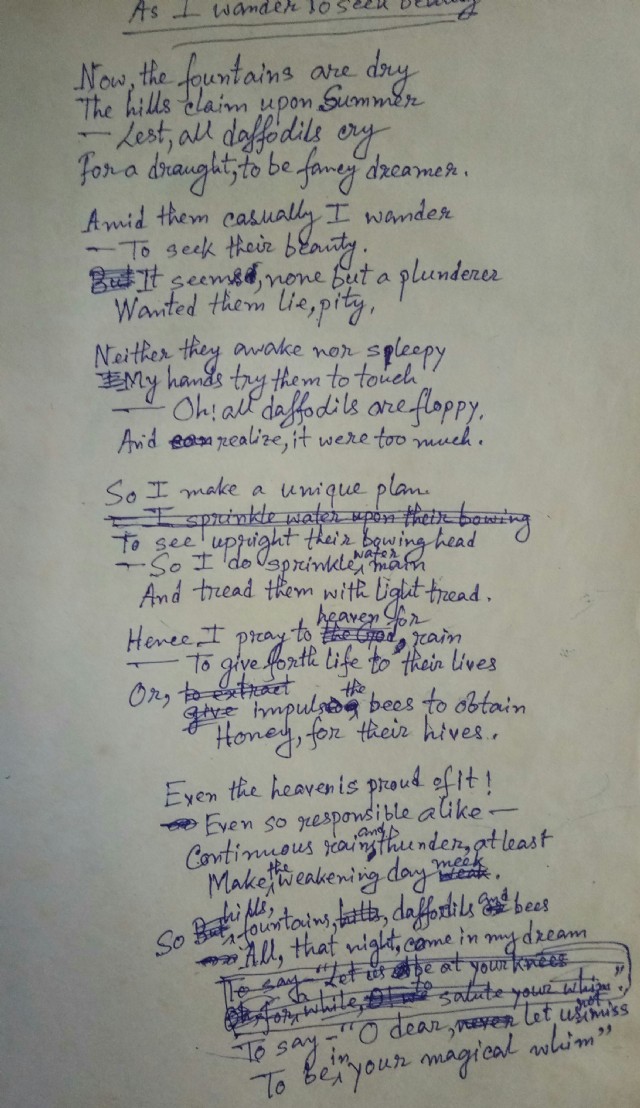 As I wander to seek beauty
Now, the fountains are dry
The hills claim upon Summer
— Lest, all daffodils cry
For a draught, to be fancy dreamer.
Amid them casually I wander
— To seek their beauty.
But It seems, none but a plunderer
Wanted them lie, pity,
Neither they awake nor spleepy
My hands try them to touch
— Oh! all daffodils are floppy,
And realize, it were too much.
So I make a unique plan
— I sprinkle water upon their bowing
To see upright their bowing head
— So I do sprinkle water main
And tread them with light tread.
Hence I pray to the God, heaven for rain
— To give forth life to their lives
Or, to extract
give impulse the bees to obtain
Honey, for their hives.
Even the heaven is proud of it!
Even so responsible alike —
Continuous rains and thunder, at least
Make, the weakening day weak meek.
So But hills, fountains, hills, daffodils and bees
All, that night, come in my dream
To say - "Let us be at your knees
for, while, to salute your whim".
To say - "O dear, never let us not miss
To be in your magical whim"